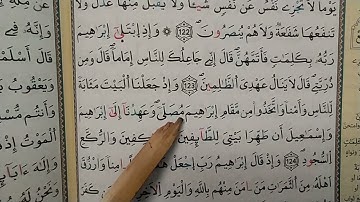 يَوْمًا لَا تَجْزِى نَفْسٌ عَن نَّفْسٍ شَيْـًٔا وَلَا يُقْبَلُ مِنْهَا عَدْلٌ وَلَا
تَنفَعُهَا شَفَٰعَةٌ وَلَا هُمْ يُنصَرُونَ 122 وَإِذِ ٱبْتَلَىٰٓ إِبْرَٰهِيمَ
رَبُّهُۥ بِكَلِمَٰتٍ فَأَتَمَّهُنَّ قَالَ إِنِّى جَاعِلُكَ لِلنَّاسِ إِمَامًا قَالَ وَمِن
ذُرِّيَّتِى قَالَ لَا يَنَالُ عَهْدِى ٱلظَّٰلِمِينَ 123 وَإِذْ جَعَلْنَا ٱلْبَيْتَ مَثَابَةً
لِّلنَّاسِ وَأَمْنًا وَٱتَّخَذُوا۟ مِن مَّقَامِ إِبْرَٰهِيمَ مُصَلًّى وَعَهِدْنَآ إِلَىٰٓ إِبْرَٰهِيمَ
وَإِسْمَٰعِيلَ أَن طَهِّرَا بَيْتِىَ لِلطَّآئِفِينَ وَٱلْعَٰكِفِينَ وَٱلرُّكَّعِ
ٱلسُّجُودِ 124 وَإِذْ قَالَ إِبْرَٰهِيمُ رَبِّ ٱجْعَلْ هَٰذَا بَلَدًا ءَامِنًا وَٱرْزُقْ
أَهْلَهُۥ مِنَ ٱلثَّمَرَٰتِ مَنْ ءَامَنَ مِنْهُم بِٱللَّهِ وَٱلْيَوْمِ ٱلْءَاخِرِ